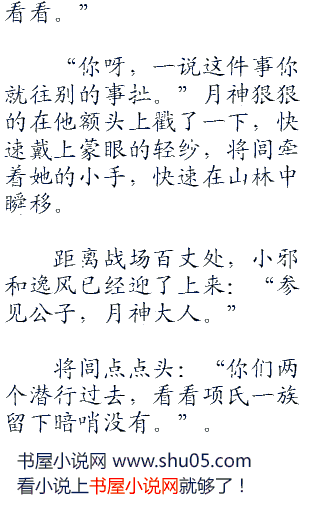 看看。”
“你呀，一说这件事你
就往别的事扯。”月神狠狠
的在他额头上戳了一下，快
速戴上蒙眼的轻纱，将闾牵
着她的小手，快速在山林中
瞬移。
距离战场百丈处，小邪
和逸风已经迎了上来：“参
见公子，月神大人。”
将闾点点头：“你们两
个潜行过去，看看项氏一族
留下暗哨没有。”。
书屋小说网 www.shu05.com
看小说上书屋小说网就够了！